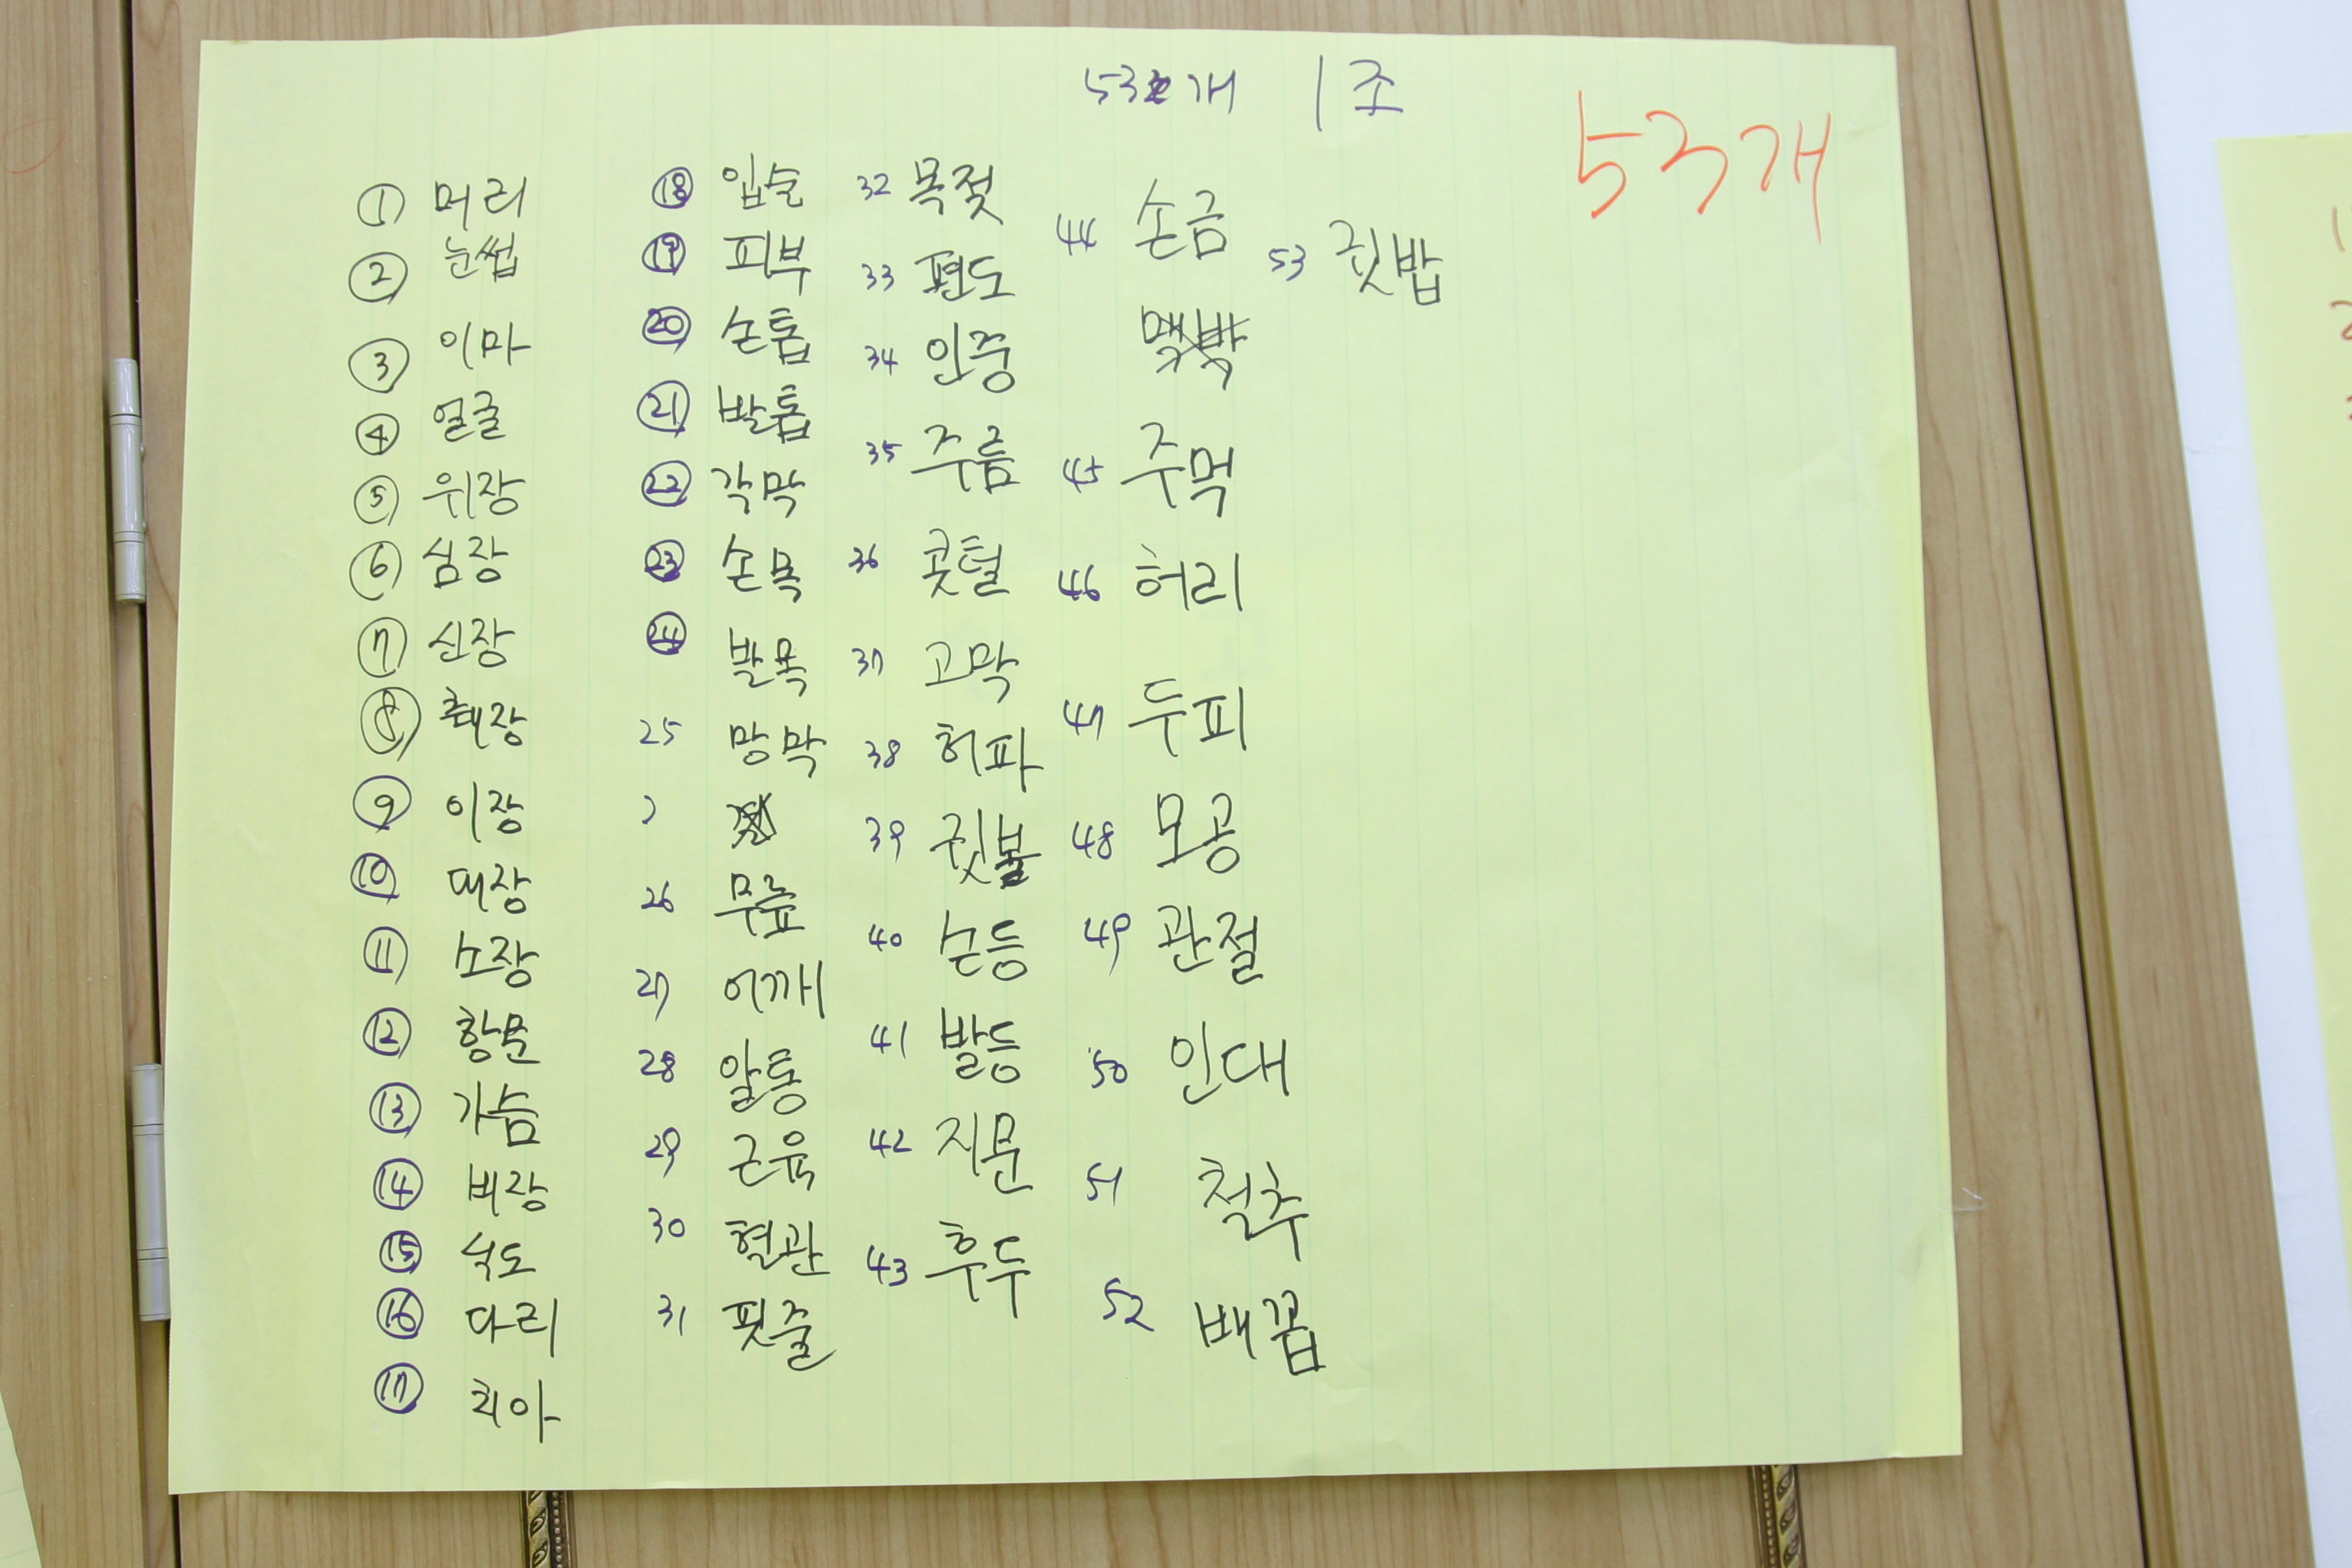 53개 1조
53개
① 머리
② 눈썹
③ 이마
④ 얼굴
⑤ 위장
⑥ 심장
⑦ 신장
⑧ 췌장
⑨ 이장
⑩ 대장
⑪ 소장
⑫ 항문
⑬ 가슴
⑭ 비장
⑮ 식도
⑯ 다리
⑰ 치아
⑱ 입술
⑲ 피부
⑳ 손톱
㉑ 발톱
㉒ 각막
㉓ 손목
㉔ 발목
25 망막
26 무릎
27 어깨
28 알통
29 근육
30 혈관
31 핏줄
32 목젖
33 편도
34 인중
35 주름
36 콧털
37 고막
38 허파
39 귓볼
40 손등
41 발등
42 지문
43 후두
44 손금
45 주먹
46 허리
47 두피
48 모공
49 관절
50 인대
51 척추
52 배꼽
53 귓밥